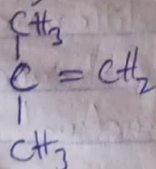 CH3
|
C = CH2
|
CH3